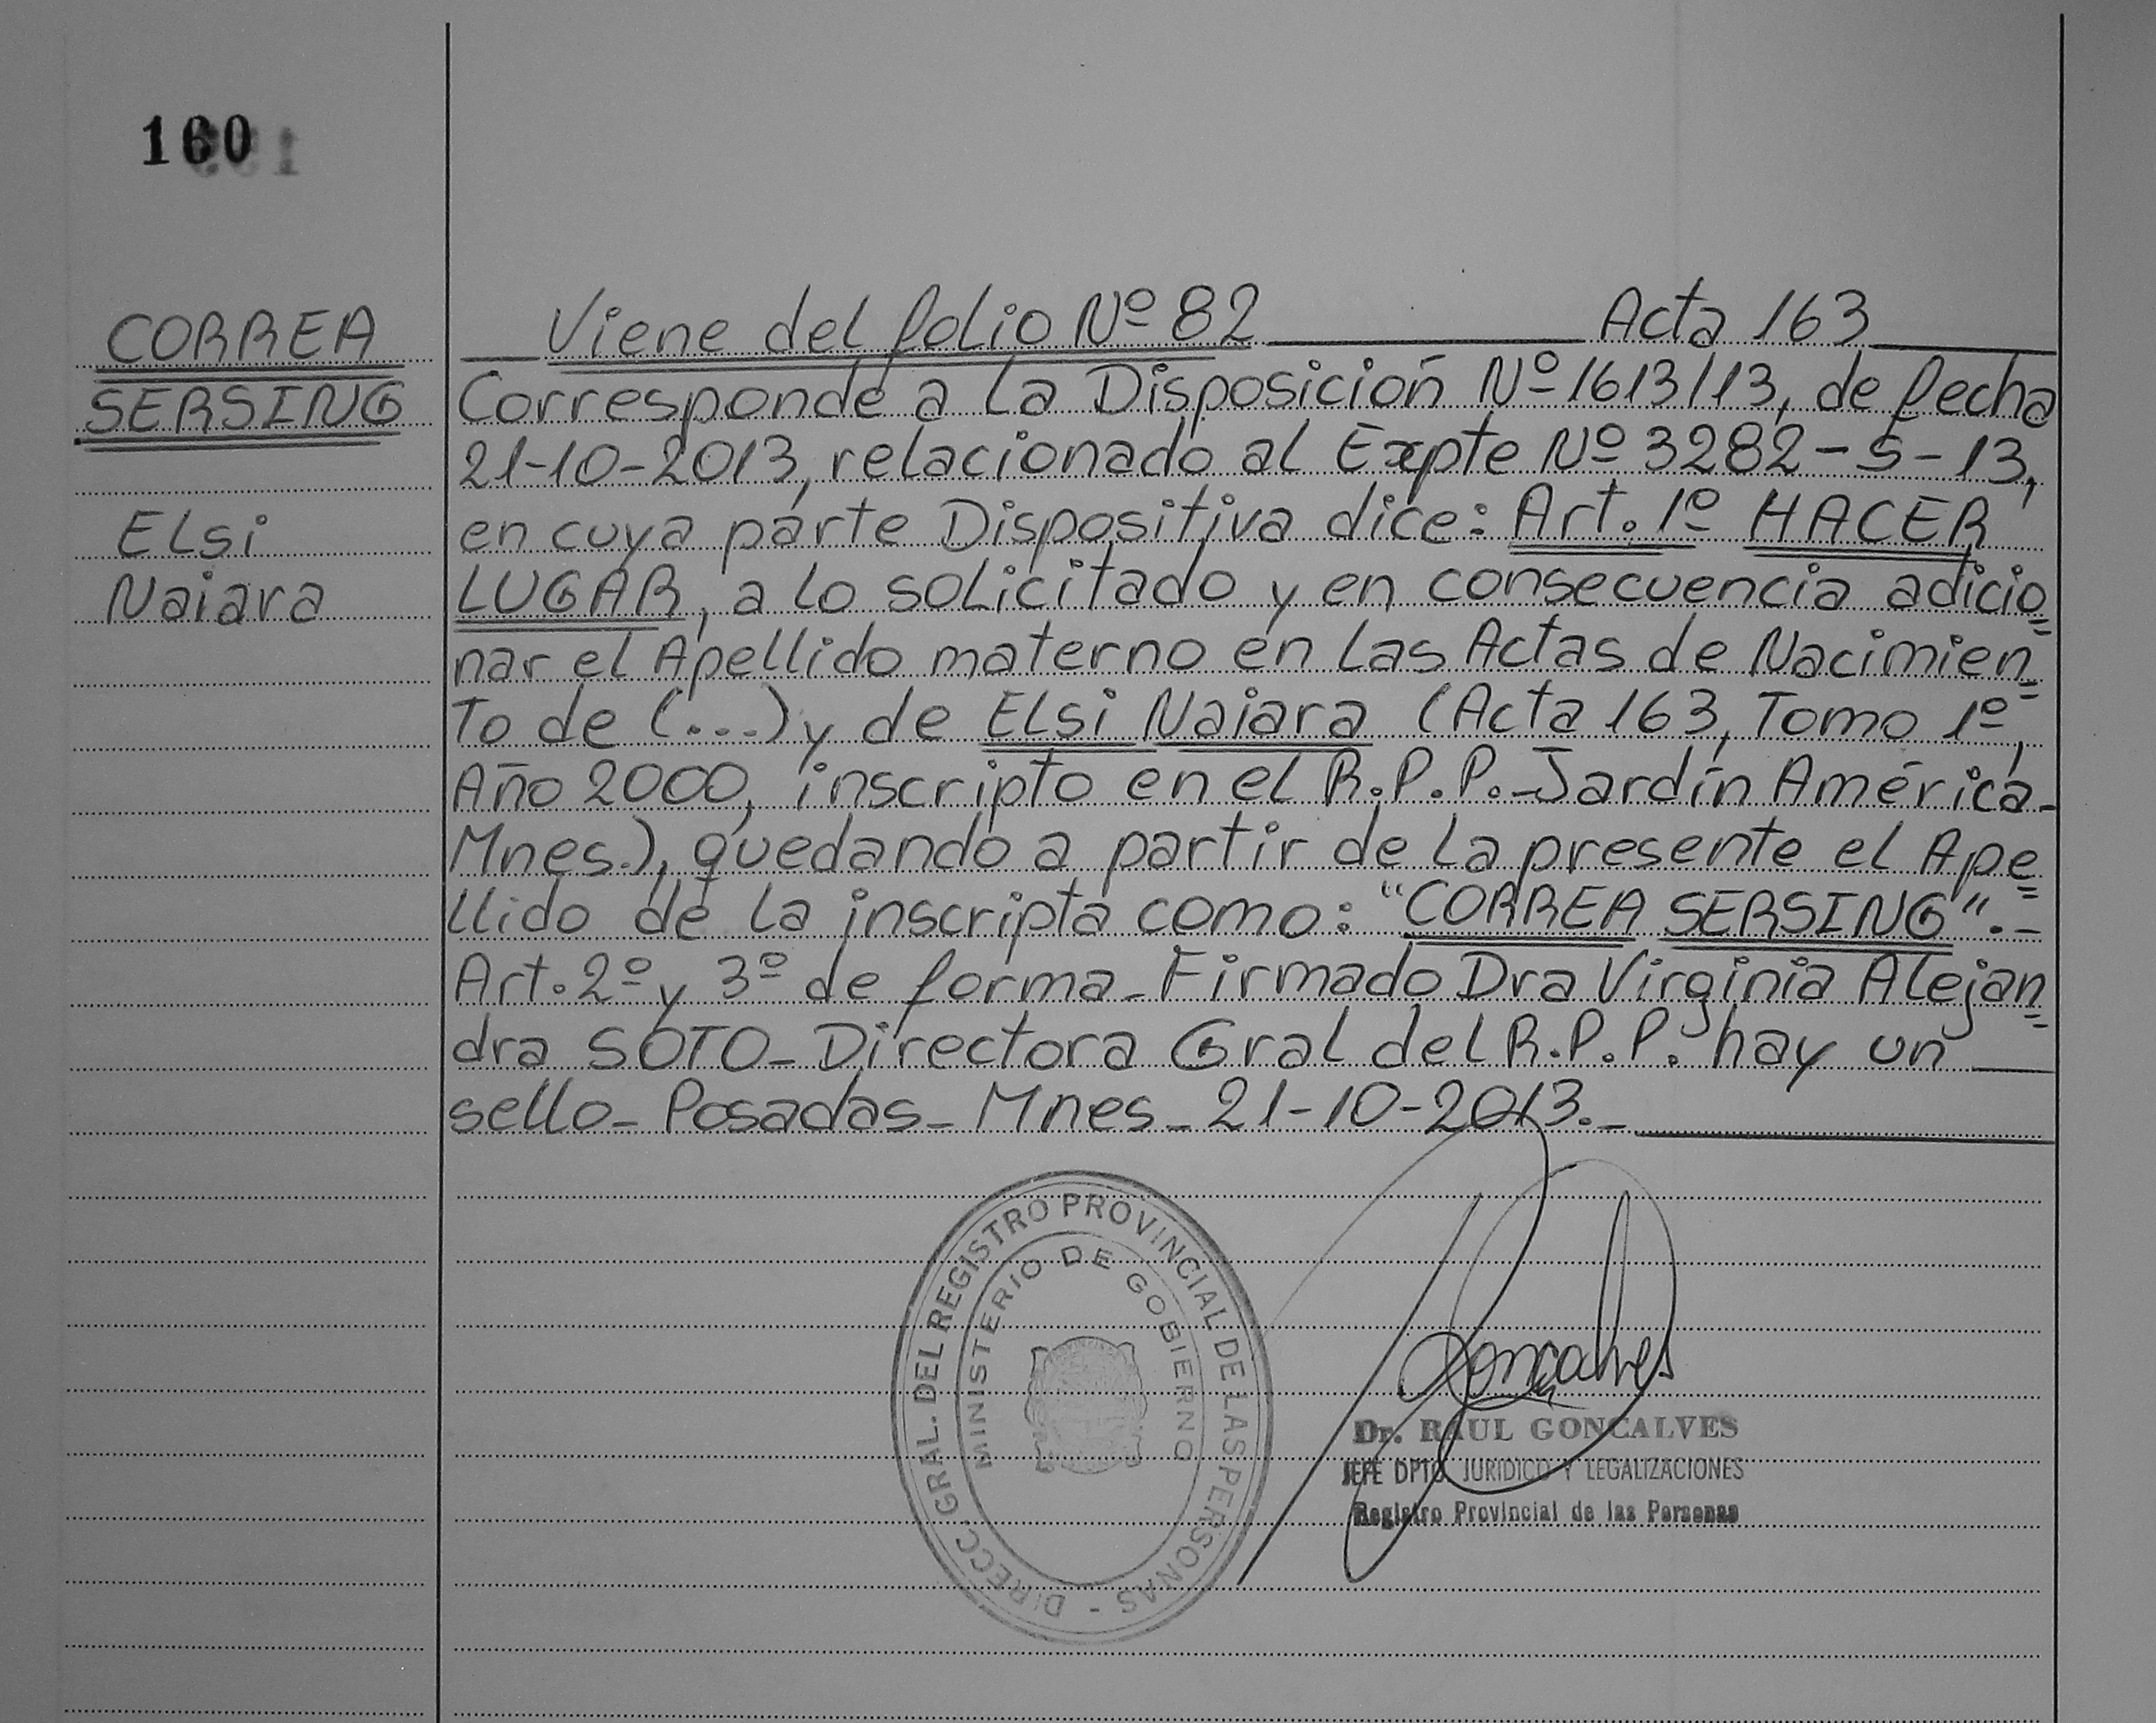 160
CORREA
SERSING
Elsi
Naiara
Viene del folio Nº 82 Acta 163
Corresponde a la Disposición Nº 1613/13, de fecha
21-10-2013, relacionado al Expte Nº 3282-S-13,
en cuya parte Dispositiva dice: Art. 1º HACER
LUGAR, a lo solicitado y en consecuencia adicio=
nar el Apellido materno en las Actas de Nacimien=
to de (...) y de Elsi Naiara (Acta 163, Tomo 1º,
Año 2000, inscripto en el R.P.P.-Jardín América-
Mnes.), quedando a partir de la presente el Ape=
llido de la inscripta como: "CORREA SERSING".-
Art. 2º y 3º de forma- Firmado Dra Virginia Alejan=
dra SOTO- Directora Gral del R.P.P. hay un
sello- Posadas- Mnes- 21-10-2013.-
DIRECC. GRAL. DEL REGISTRO PROVINCIAL DE LAS PERSONAS -
MINISTERIO DE GOBIERNO
Goncalves
Dr. RAUL GONCALVES
JEFE DPTO. JURIDICO Y LEGALIZACIONES
Registro Provincial de las Personas